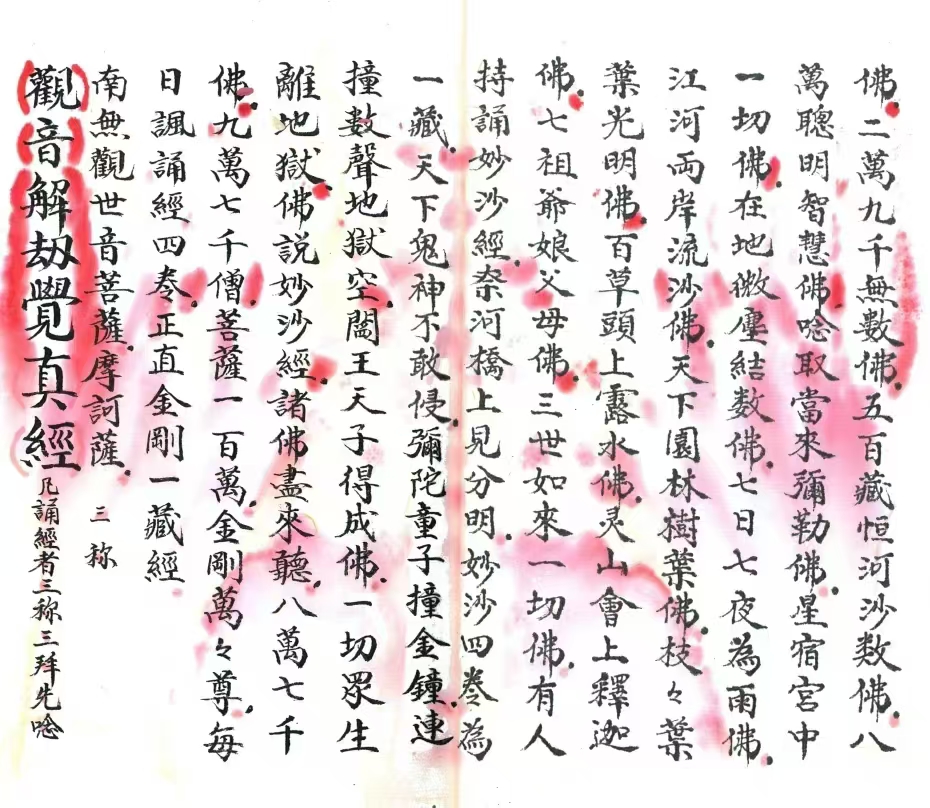 佛。二萬九千無數佛。五百藏恒河沙数佛。八
萬聰明智慧佛。唸取當來彌勒佛。星宿宮中
一切佛。在地微塵結数佛。七日七夜為雨佛。
江河両岸流沙佛。天下園林樹葉佛。枝々葉
葉光明佛。百草頭上露水佛。灵山會上釋迦
佛。七祖爺娘父母佛。三世如來一切佛。有人
持誦妙沙經。奈河橋上見分明。妙沙四卷為
一藏。天下鬼神不敢侵。彌陀童子撞金鐘。連
撞数聲地獄空。閻王天子得成佛。一切眾生
離地獄。佛說妙沙經。諸佛盡來聽。八萬七千
佛。九萬七千僧。菩薩一百萬。金剛萬々尊。每
日諷誦經四卷。正直金剛一藏經
南無觀世音菩薩。摩訶薩。 三称
觀音解劫覺真經 凡誦經者三称三拜先唸